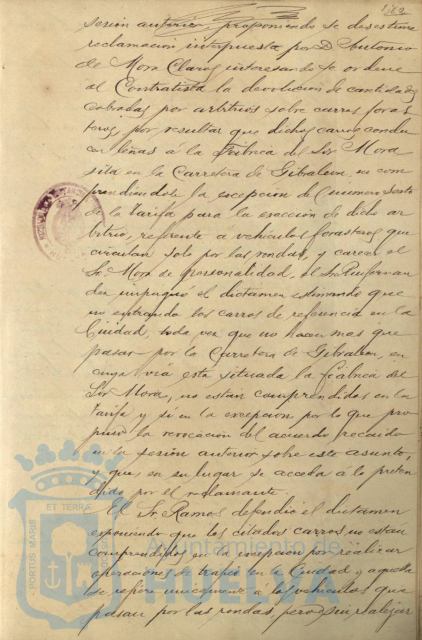 182
sesión anterior, proponiendo se desestime
reclamación interpuesta por D. Antonio
de Mora Claros, interesando se ordene
al Contratista la devolución de cantidades
cobradas por arbitrios sobre carros foras
teros, por resultar que dichos carros condu
cen leñas á la Fábrica del Sor Mora
sita en la Carretera de Gibraleon, no com
prendiendole la excepcion del número sexto
de la tarifa para la exacción de dicho ar
bitrio, referente á vehículos forasteros que
circulan solo por las rondas, y carecer el
Sr Mora de personalidad, el Sr
impugnó el dictamen estimando que
no entrando los carros de referencia en la
Ciudad, toda vez que no hacen mas que
pasar por la Carretera de Gibraleon, en
cuya vía está situada la fábrica del
Sor Mora, no estan comprendidos en la
tarifa y sí en la excepcion por lo que pro
puso la revocación del acuerdo recaido
en la sesión anterior sobre este asunto,
y que en su lugar se acceda á lo preten
dido por el reclamante.
El Sr Ramos defendió el dictamen
exponiendo que los citados carros no estan
comprendidos en la excepcion por realizar
operaciones de trafico en la Ciudad y aquella
se refiere unicamente a los vehículos que
pasan por las rondas, pero sin realizar
PORTUS MARIS
ET TERRAE
Ayuntamiento de
HUELVA